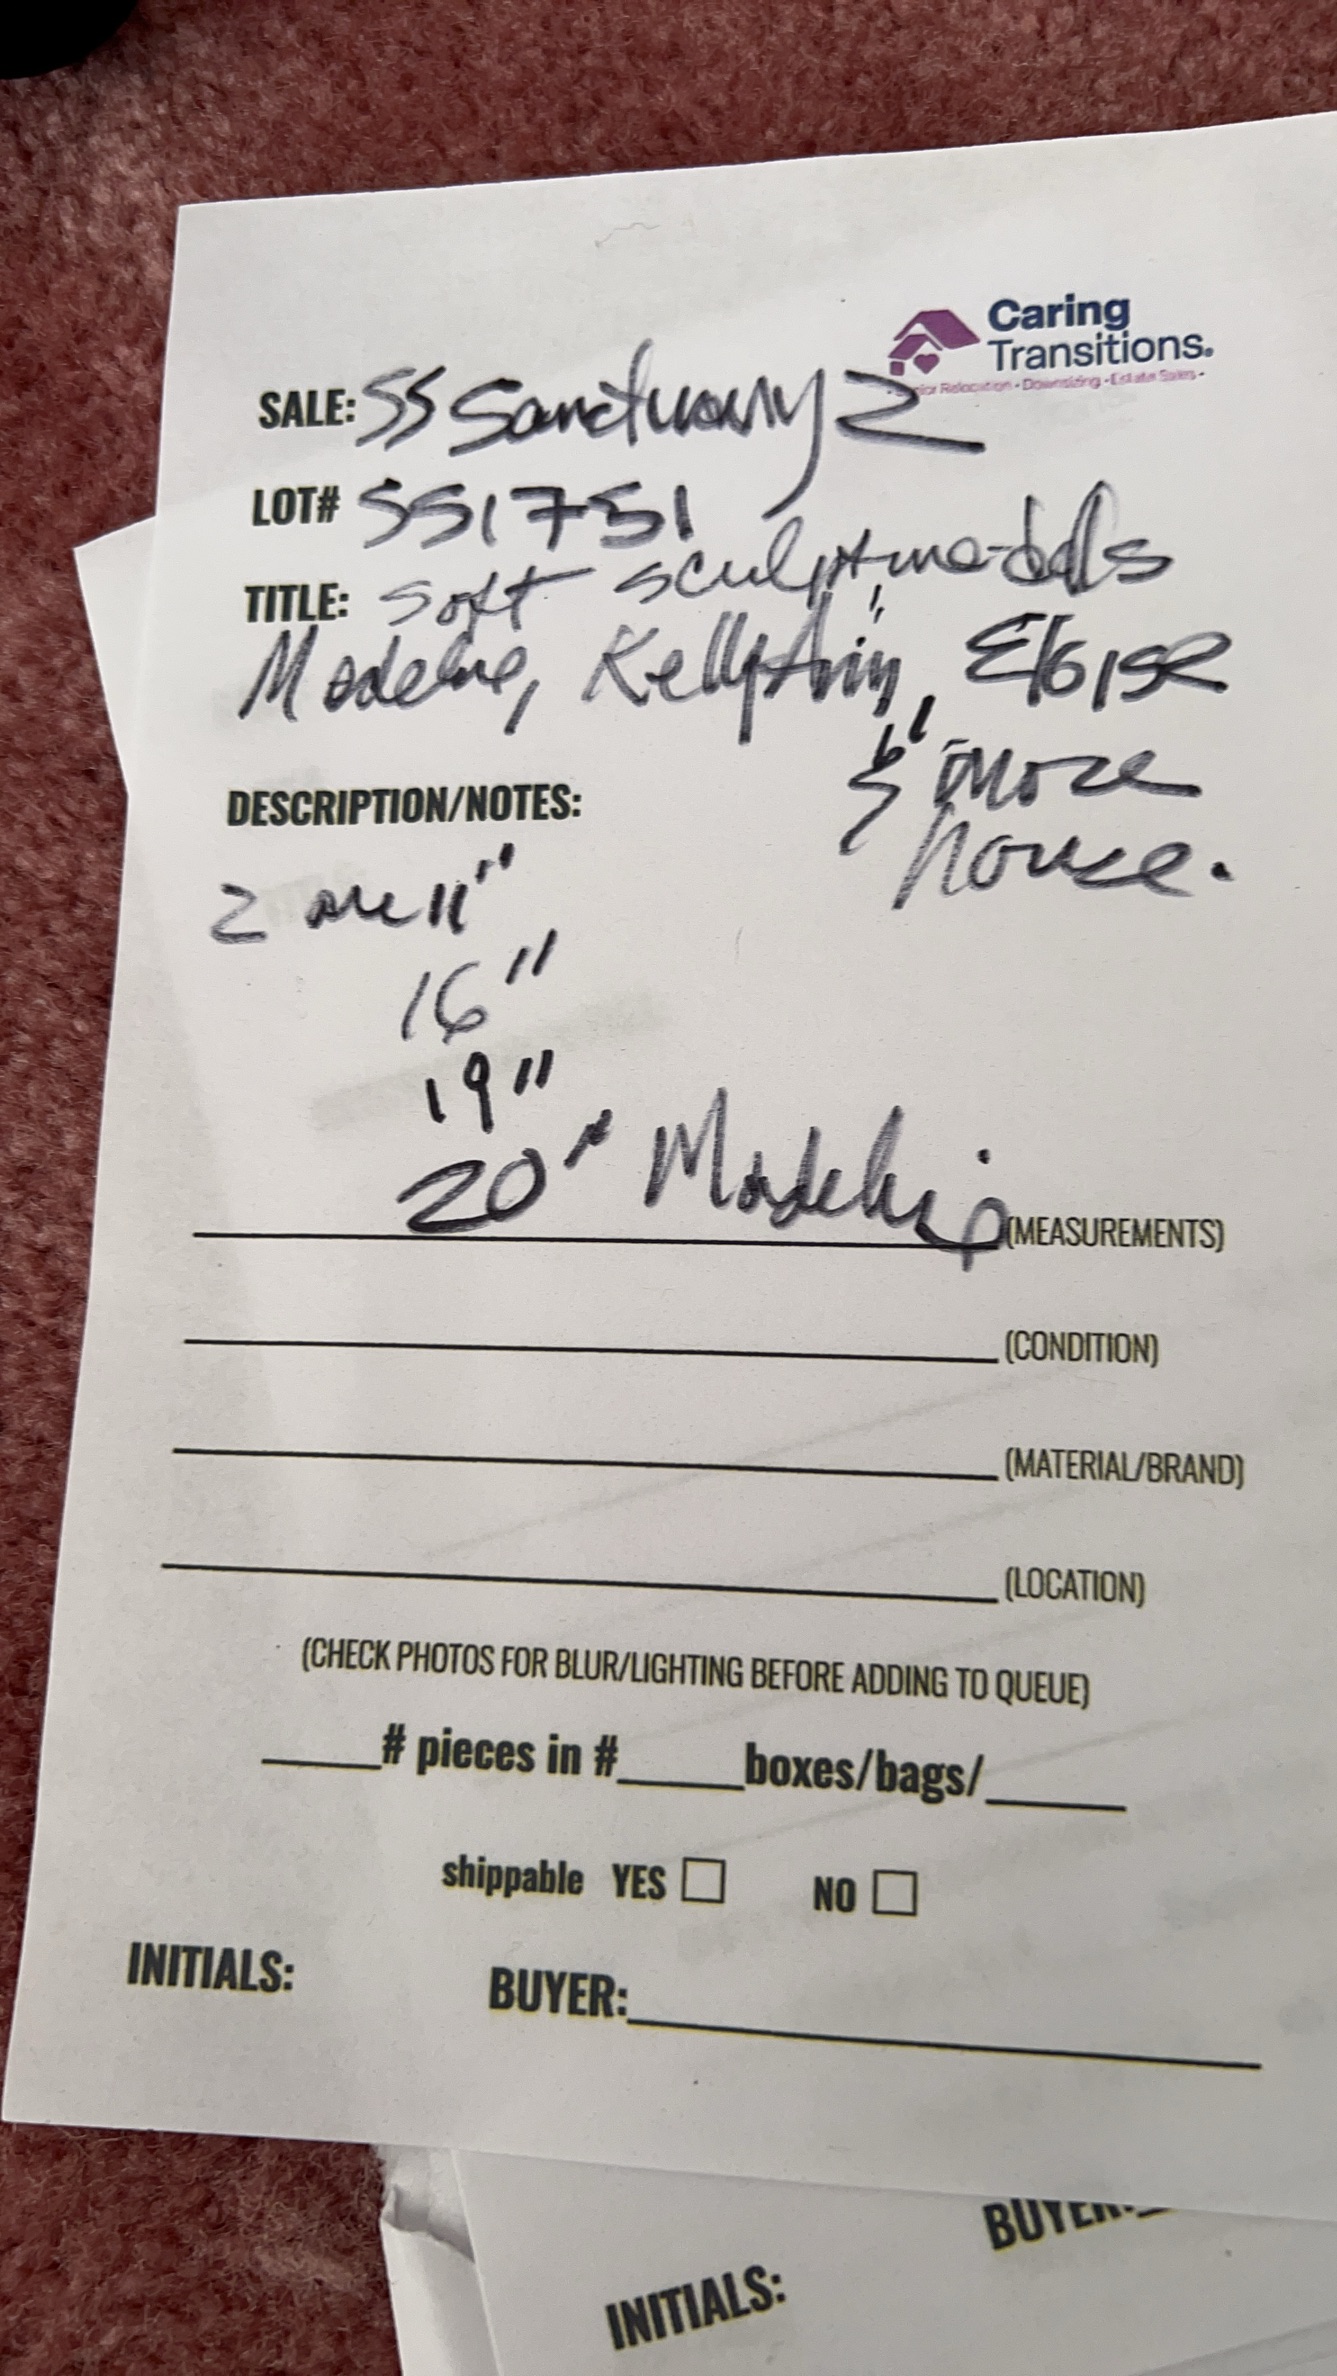 Caring
Transitions.
Senior Relocation • Downsizing • Estate Sales •
SALE: SS Sanctuary 2
LOT# SS1751
TITLE: Soft sculpture dolls
Madeline,
& more
house.
DESCRIPTION/NOTES:
2 are 11"
16"
19"
20"
(MEASUREMENTS)
(CONDITION)
(MATERIAL/BRAND)
(LOCATION)
(CHECK PHOTOS FOR BLUR/LIGHTING BEFORE ADDING TO QUEUE)
# pieces in # boxes/bags/
shippable YES NO
INITIALS: BUYER:
BUYER:
INITIALS: